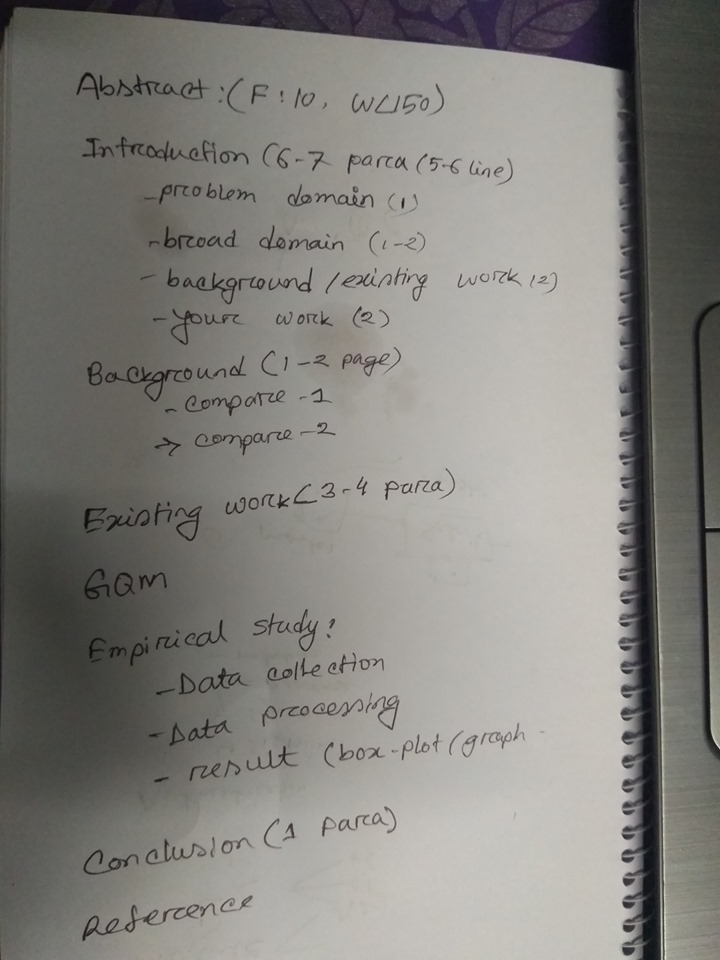 Abstract:(F:10, W<150)
Introduction (6-7 para (5-6 line)
- problem domain (1)
- broad domain (1-2)
- background / existing work (2)
- your work (2)
Background (1-2 page)
- compare -1
→ compare -2
Existing work (3-4 para)
GQM
Empirical study:
- Data collection
- Data processing
- result (box-plot (graph -
Conclusion (1 para)
Reference